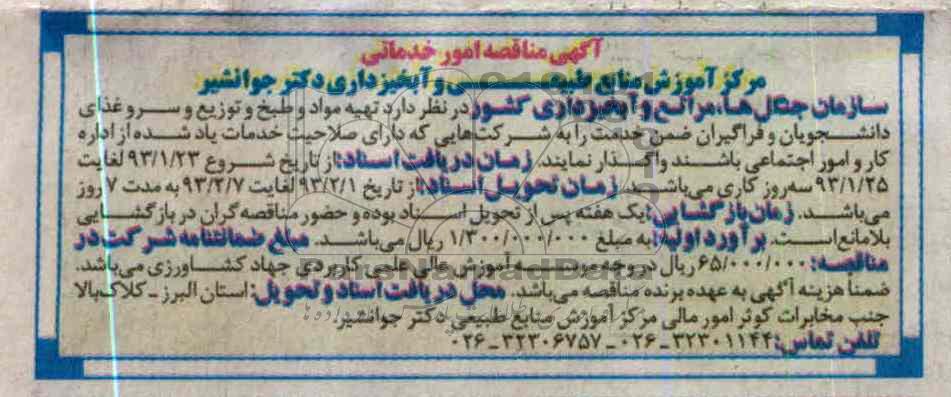 آگهی مناقصه امور خدماتی
مرکز آموزش منابع طبیعی و آبخیزداری دکتر جوانشیر
سازمان جنگل ها، مراتع و آبخیزداری کشور در نظر دارد تهیه مواد و طبخ و توزیع و سرو غذای
دانشجویان و فراگیران ضمن خدمت را به شرکت‌هایی که دارای صلاحیت خدمات یاد شده از اداره
کار و امور اجتماعی باشند واگذار نمایند. زمان دریافت اسناد: از تاریخ شروع ۹۳/۱/۲۳ لغایت
۹۳/۱/۲۵ سه روز کاری می‌باشد. زمان تحویل اسناد: از تاریخ ۹۳/۲/۱ لغایت ۹۳/۲/۷ به مدت ۷ روز
می‌باشد. زمان بازگشایی: یک هفته پس از تحویل اسناد بوده و حضور مناقصه گران در بازگشایی
بلامانع است. برآورد اولیه: به مبلغ ۱/۳۰۰/۰۰۰/۰۰۰ ریال می‌باشد. مبلغ ضمانتنامه شرکت در
مناقصه: ۶۵/۰۰۰/۰۰۰ ریال در وجه آموزش عالی علمی کاربردی جهاد کشاورزی می‌باشد.
ضمناً هزینه آگهی به عهده برنده مناقصه می‌باشد. محل دریافت اسناد و تحویل: استان البرز ـ کلاک بالا
جنب مخابرات کوثر امور مالی مرکز آموزش منابع طبیعی دکتر جوانشیر.
تلفن تماس: ۳۲۳۰۱۱۴۴ـ۰۲۶ ـ ۳۲۳۰۶۷۵۷ـ۰۲۶
ParsNamadData